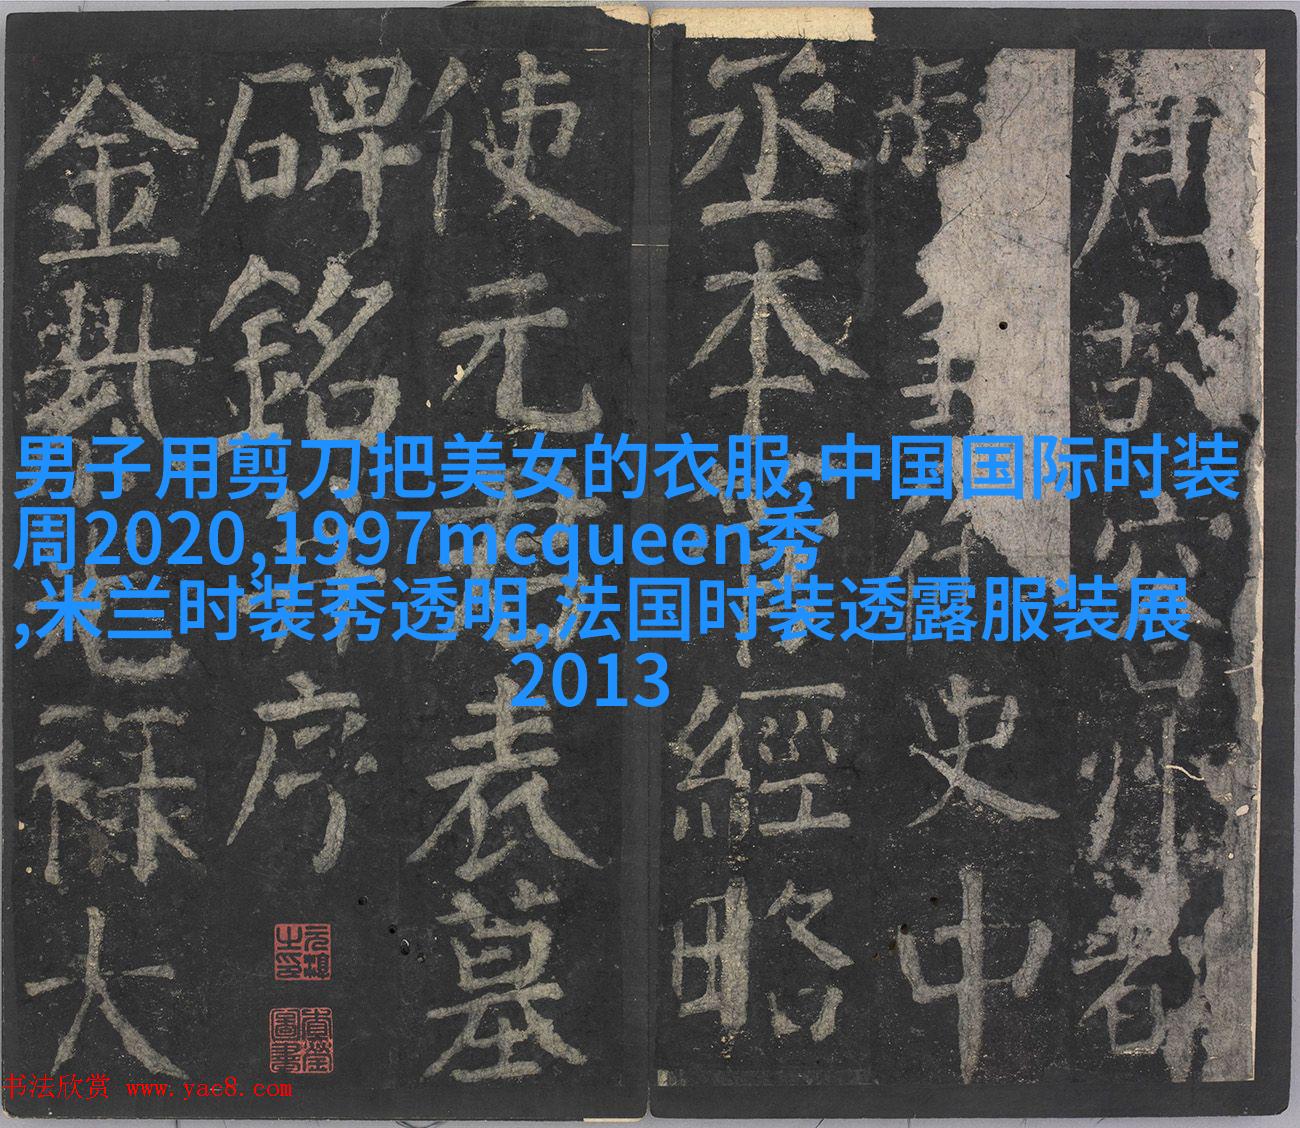 男子用剪刀把美女的衣服,中国国际时装
周2020,1997mcqueen秀
,米兰时装秀透明,法国时装透露服装展
2013
故容州都
史中
丞本管經略
使元君表墓
碑銘并序
金紫光祿大
书法欣赏 www.yac8.com